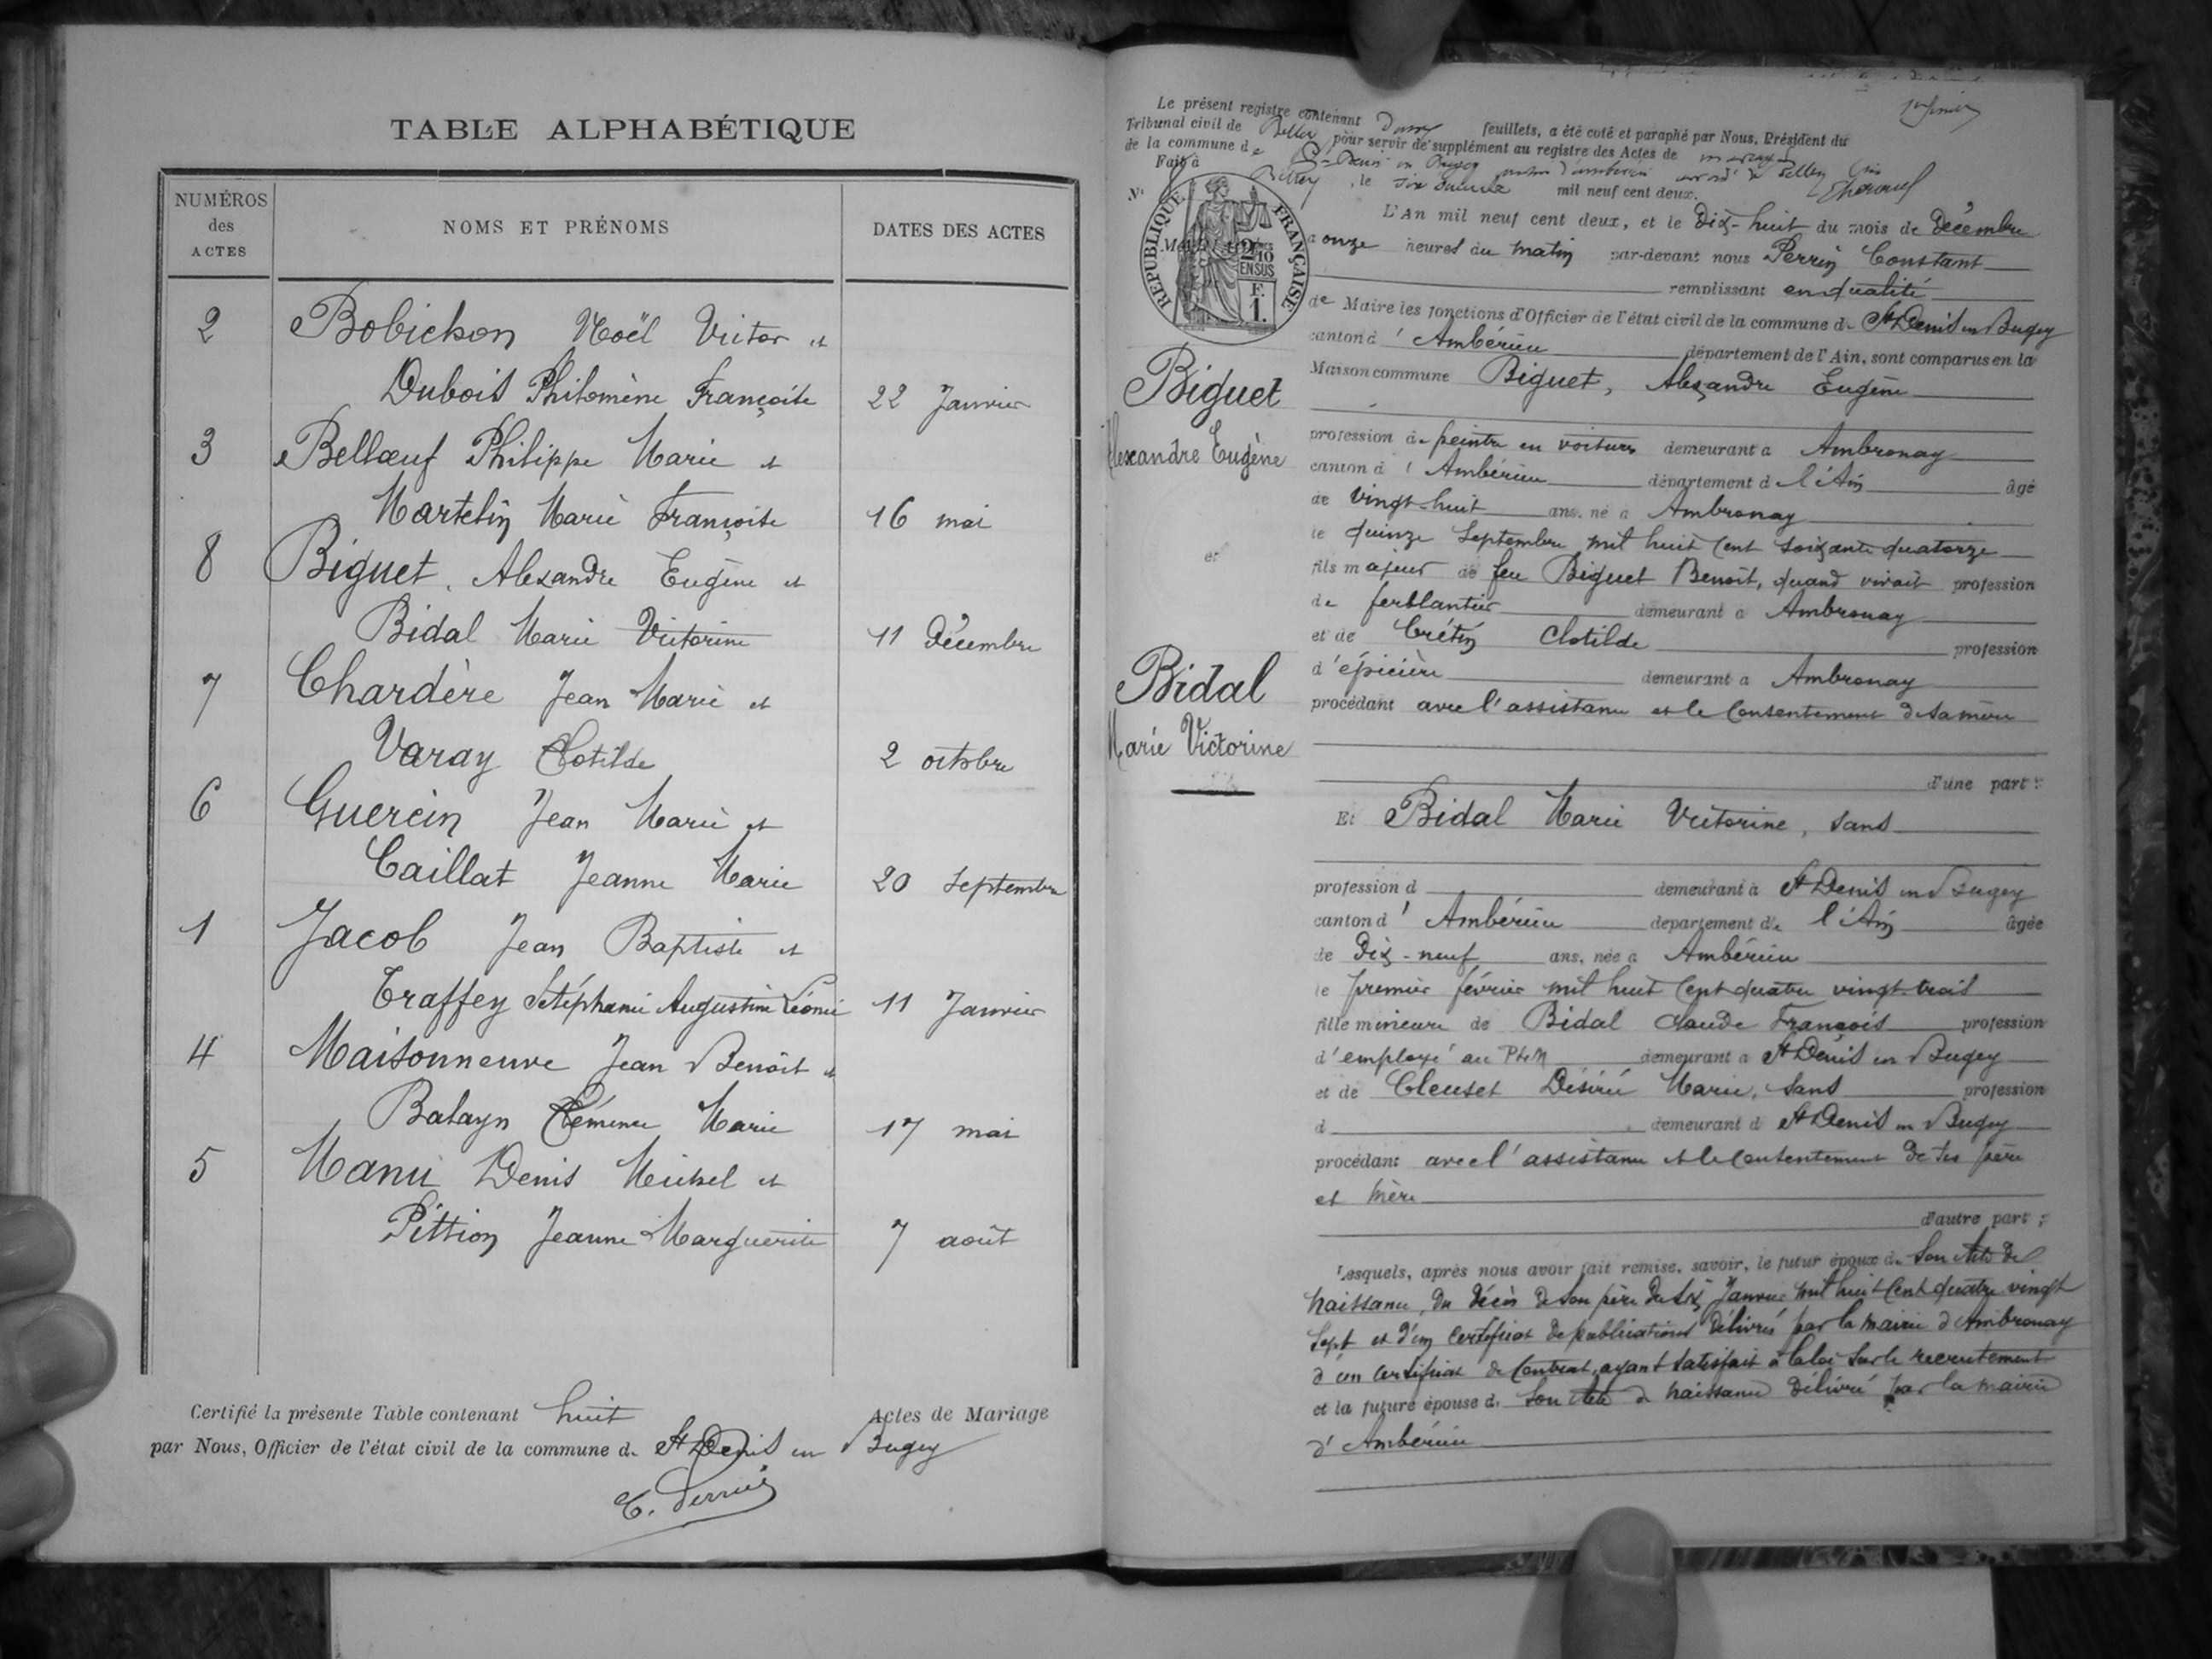 TABLE ALPHABÉTIQUE
NUMÉROS des ACTES
NOMS ET PRÉNOMS
DATES DES ACTES
2 Bobichon Noël Victor et
Dubois Philomène Françoise 22 Janvier
3 Bellœuf Philippe Marie et
Martelin Marie Françoise 16 mai
8 Biguet, Alexandre Eugène et
Bidal Marie Victorine 11 Décembre
7 Chardère Jean Marie et
Varay Clotilde 2 octobre
6 Guercin Jean Marie et
Caillat Jeanne Marie 20 Septembre
1 Jacob Jean Baptiste et
Traffey Stéphanie Augustine Léonie 11 Janvier
4 Maisonneuve Jean Benoît et
Balayn Clémence Marie 17 mai
5 Manu Denis Michel et
Pittion Jeanne Marguerite 7 août
Certifié la présente Table contenant huit Actes de Mariage
par Nous, Officier de l'état civil de la commune de St Denis en Bugey
C. Perrin
Le présent registre contenant feuillets, a été coté et paraphé par Nous, Président du
Tribunal civil de Belley pour servir de supplément au registre des Actes de mariage
de la commune de St Denis en Bugey canton d'Ambérieu arrondt de Belley Ain
Fait à Belley, le six mil neuf cent deux.
N°
RÉPUBLIQUE FRANÇAISE
2/10 EN SUS
F. 1.
L'An mil neuf cent deux, et le Dix-huit du mois de Décembre
à onze heures du matin par-devant nous Perrin Constant
remplissant en qualité
de Maire les fonctions d'Officier de l'état civil de la commune de St Denis en Bugey
canton d'Ambérieu département de l'Ain, sont comparus en la
Maison commune Biguet, Alexandre Eugène
Biguet
Alexandre Eugène
profession de peintre en voitures demeurant à Ambronay
canton d'Ambérieu département de l'Ain âgé
de vingt-huit ans, né à Ambronay
le quinze Septembre mil huit cent soixante quatorze
et
fils majeur de feu Biguet Benoît, quand vivait profession
de ferblantier demeurant à Ambronay
et de Crétin Clotilde profession
d'épicière demeurant à Ambronay
Bidal
Marie Victorine
procédant avec l'assistance et le consentement de sa mère
d'une part :
Et Bidal Marie Victorine, sans
profession d demeurant à St Denis en Bugey
canton d'Ambérieu département de l'Ain âgée
de Dix-neuf ans, née à Ambérieu
le premier février mil huit cent quatre vingt trois
fille mineure de Bidal Claude François profession
d'employé au PLM demeurant à St Denis en Bugey
et de Cleuset Désirée Marie, sans profession
d demeurant à St Denis en Bugey
procédant avec l'assistance et le consentement de ses père
et mère
d'autre part ;
Lesquels, après nous avoir fait remise, savoir, le futur époux de son acte de
naissance, du décès de son père du six Janvier mil huit cent quatre vingt
sept et d'un certificat de publications délivrés par la mairie d'Ambronay
d'un certificat de contrat, ayant satisfait à la loi sur le recrutement
et la future épouse de son acte de naissance délivré par la mairie
d'Ambérieu